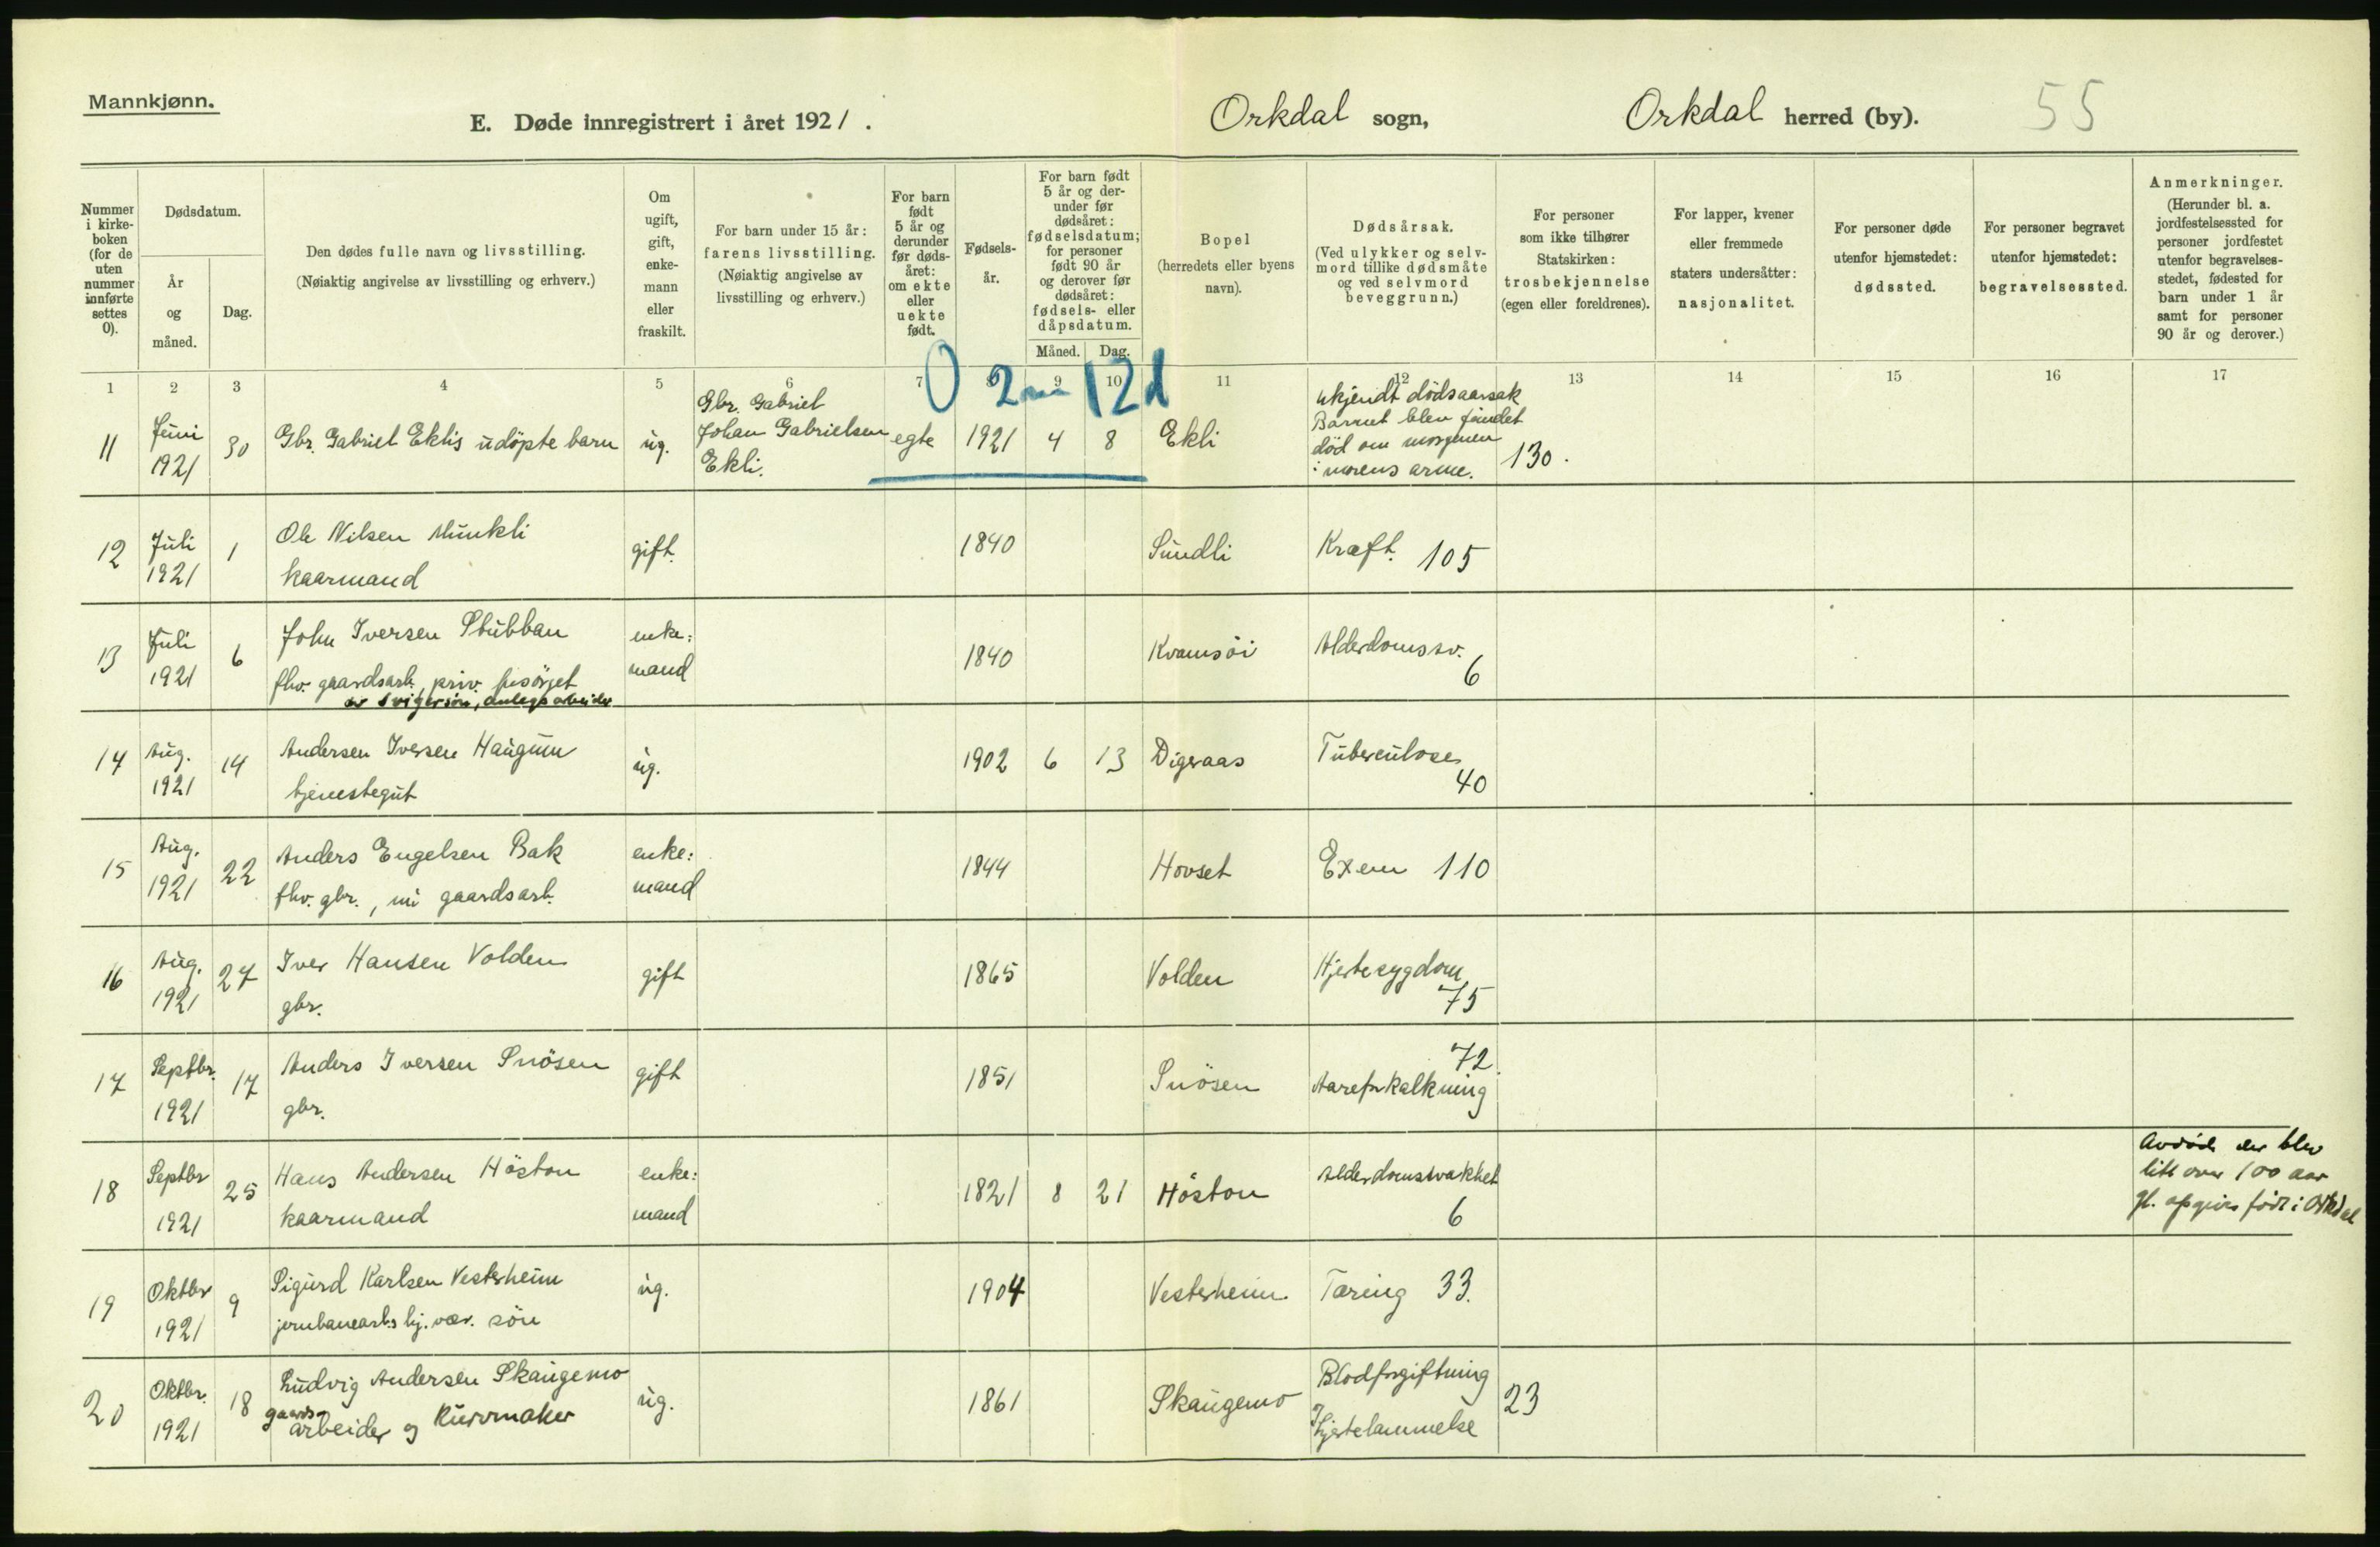 Mannkjønn.
E. Døde innregistrert i året 1921.
Orkdal sogn,
Orkdal herred (by).
55
Nummer i kirke-boken (for de uten nummer innførte settes 0).
Dødsdatum.
År og måned.
Dag.
Den dødes fulle navn og livsstilling.
(Nøiaktig angivelse av livsstilling og erhverv.)
Om ugift, gift, enke-mann eller fraskilt.
For barn under 15 år: farens livsstilling. (Nøiaktig angivelse av livsstilling og erhverv.)
For barn født 5 år og derunder før døds-året: om ekte eller uekte født.
Fødsels-år.
For barn født 5 år og der-under før dødsåret: fødselsdatum; for personer født 90 år og derover før dødsåret: fødsels- eller dåpsdatum.
Måned. Dag.
Bopel (herredets eller byens navn).
Dødsårsak. (Ved ulykker og selv-mord tillike dødsmåte og ved selvmord beveggrunn.)
For personer som ikke tilhører Statskirken: trosbekjennelse (egen eller foreldrenes).
For lapper, kvener eller fremmede staters undersåtter: nasjonalitet.
For personer døde utenfor hjemstedet: dødssted.
For personer begravet utenfor hjemstedet: begravelsessted.
Anmerkninger. (Herunder bl. a. jordfestelsessted for personer jordfestet utenfor begravelses-stedet, fødested for barn under 1 år samt for personer 90 år og derover.)
1 2 3 4 5 6 7 8 9 10 11 12 13 14 15 16 17
0 2m 12d
11 Juni 1921 30 Gbr. Gabriel Eklis udöpte barn ug. Gbr. Gabriel Johan Gabrielsen Ekli. egte 1921 4 8 Ekli Ukjendt dödsaarsak Barnet blev fundet död om morgenen i morens arme. 130.
12 Juli 1921 1 Ole Nilsen Munkli kaarmand gift. 1840 Sundli Kræft. 105
13 Juli 1921 6 John Iversen Stubban fhv. gaardsarb., priv. forsörjet av svigersön, anlegsarbeider enke: mand 1840 Kvamsöi Alderdomssv. 6
14 Aug. 1921 14 Andersen Iversen Haugum tjenestegut ug. 1902 6 13 Digeraas Tuberculose 40
15 Aug. 1921 22 Anders Engelsen Bak fhv. gbr., nu gaardsarb. enke: mand 1844 Hovset Exem 110
16 Aug. 1921 27 Iver Hansen Volden gbr. gift 1865 Volden Hjertesygdom 75
17 Septbr. 1921 17 Anders Iversen Snösen gbr. gift 1851 Snösen 72 Aareforkalkning
18 Septbr 1921 25 Hans Andersen Höston kaarmand enke: mand 1821 8 21 Höston Alderdomssvakhet 6 Avdöde der blev litt over 100 aar gl. opgives född i Orkdal
19 Oktbr 1921 9 Sigurd Karlsen Vesterheim jernbanearb.s hj. vær. sön ug. 1904 Vesterheim Tæring 33.
20 Oktbr. 1921 18 Ludvig Andersen Skaugemo gaards-arbeider og Kurvmaker ug. 1861 Skaugemo Blodforgiftning Hjertelammelse 23